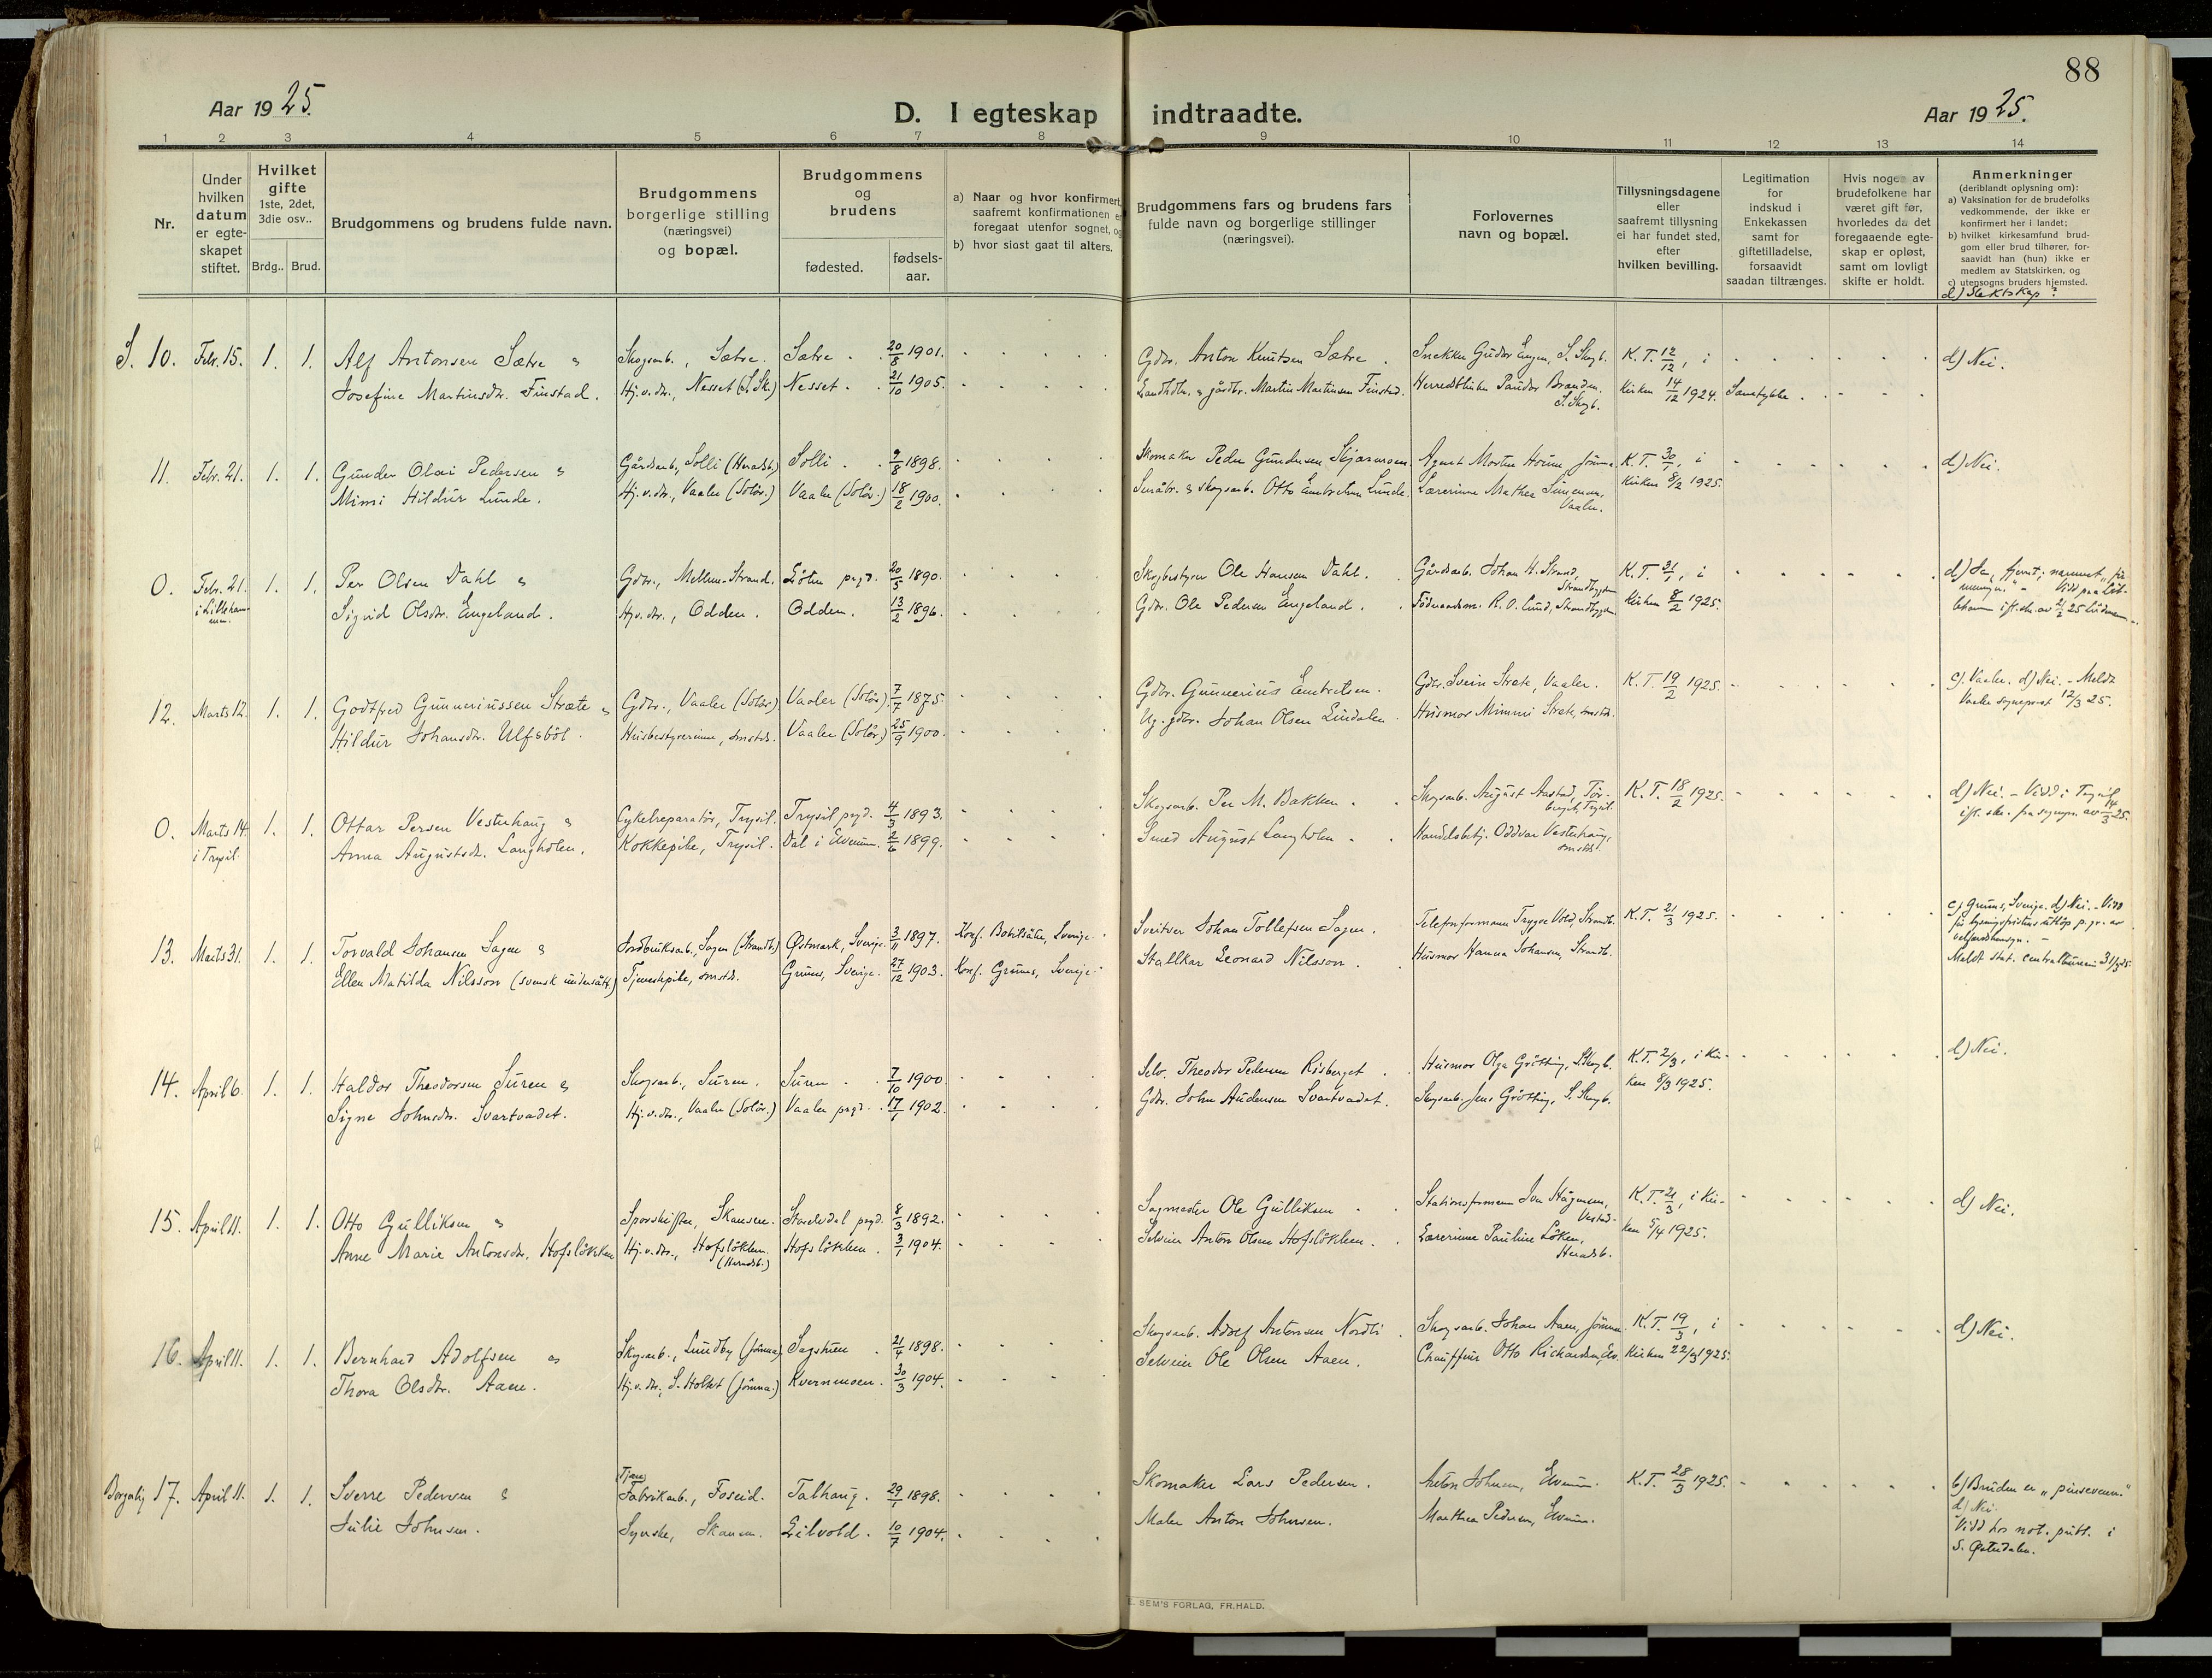 88
Aar 1925.
D. I egteskap indtraadte.
Aar 1925.
1 2 3 4 5 6 7 8 9 10 11 12 13 14
Nr.
Under hvilken datum er egteskapet stiftet.
Hvilket gifte 1ste, 2det, 3die osv..
Brdg.. Brud.
Brudgommens og brudens fulde navn.
Brudgommens borgerlige stilling (næringsvei) og bopæl.
Brudgommens og brudens
fødested.
fødselsaar.
a) Naar og hvor konfirmert, saafremt konfirmationen er foregaat utenfor sognet, og
b) hvor sidst gaat til alters.
Brudgommens fars og brudens fars fulde navn og borgerlige stillinger (næringsvei).
Forlovernes navn og bopæl.
Tillysningsdagene eller saafremt tillysning ei har fundet sted, efter hvilken bevilling.
Legitimation for indskud i Enkekassen samt for giftetilladelse, forsaavidt saadan tiltrænges.
Hvis nogen av brudefolkene har været gift før, hvorledes da det foregaaende egteskap er opløst, samt om lovligt skifte er holdt.
Anmerkninger (deriblandt oplysning om):
a) Vaksination for de brudefolks vedkommende, der ikke er konfirmert her i landet;
b) hvilket kirkesamfund brudgom eller brud tilhører, forsaavidt han (hun) ikke er medlem av Statskirken, og
c) utensogns bruders hjemsted.
d) Slektskap?
S. 10. Febr. 15. 1. 1. Alf Antonsen Sætre & Skogsarb., Sætre. Sætre. 20/8 1901. Gdbr. Anton Knutsen Sætre. Snekker Gudor Engen, S. Skogb. K. T. 12/12, i d) Nei.
Josefine Martinsdr. Finstad. Hj.v.dr., Nesset (S. Sk.) Nesset. 21/10 1905. Landhdlr. & gårdbr. Martin Martinsen Finstad. S. Skogb. Kirken 14/12 1924. Samtykke.
11. Febr. 21. 1. 1. Gunder Olai Pedersen & Gårdsarb., Solli (Heradsb.) Solli. 9/8 1898. Skomaker Peder Gundersen Agent Morten Jømna K. T. 30/1, i d) Nei.
Mimi Hildur Lunde. Hj.v.dr., Vaaler (Solør.) Vaaler (Solør.) 18/2 1900. Småbr. & skogsarb. Otto Embretsen Lunde. Lærerinne Mathea Simensen, Vaaler. Kirken 8/2 1925.
0. Febr. 21. 1. 1. Per Olsen Dahl & Gdbr., Mellem-Strand. Løten pregd. 20/5 1890. Skogbestyrer Ole Hansen Dahl. Gårdsarb. Johan H. Strand, Strandbygden K. T. 31/1, i
i Lillehammer. Sigrid Olsdr. Engeland. Hj.v.dr., Odden. Odden. 13/2 1896. Gdbr. Ole Pedersen Engeland. R. O. Lund, Strandbygden Kirken 8/2 1925.
12. Marts 12. 1. 1. Godtfred Gunneriussen Stræte & Gdbr., Vaaler (Solør) Vaaler (Solør) 7/7 1875. Gdbr. Gunnerius Embretsen. Gdbr. Svein Stræte, Vaaler. K. T. 19/2 1925. c) Vaaler. d) Nei. - Meldt
Hildur Johansdr. Ulfsböl. Husbestyrerinne, smstds. Vaaler (Solør.) 25/9 1900. Ug. gdbr. Johan Olsen Lindalen. Husmor Mimmi Stræte, smstds. Vaaler sogneprest 12/3 25.
0. Marts 14. 1. 1. Ottar Persen Vesterhaug & Cykelreparatør, Trysil. Trysil pregd. 4/3 1893. Skogsarb. Per M. Bakken. Skogsarb. August Aastad, Tørberget, Trysil. K. T. 18/2 1925. d) Nei. - Viedd i Trysil
i Trysil. Anna Augustsdr. Langholen. Kokkepike, Trysil. Dal i Elverum. 2/6 1899. Smed August Langholen. Handelsbetj. Oddvar Vesterhaug, smstds. ifl. skr. fra sognepr. av 14/3 25.
13. Marts 31. 1. 1. Torvald Johansen Sagen & Jordbruksarb., Sagen (Strandb.) Østmark, Sverige. 3/11 1897. Konf. Sverige. Sveitser Johan Tollefsen Sagen. Telefonformann Trygve Vold, Strandb. K. T. 21/3 1925. c) Grums, Sverige. d) Nei. - Viet
Ellen Matilda Nilsson (svensk undersått.) Tjenestepike, smstds. Grums, Sverige. 27/12 1903. Konf. Grums, Sverige. Stallkar Leonard Nilsson. Husmor Hanna Johansen, Strandb.
Meldt stat. centralbureau 31/3 25.
14. April 6. 1. 1. Haldor Theodorsen Suren & Skogsarb., Suren. Suren. 7/10 1900. Selv. Theodor Pedersen Risberget. Husmor Olga Grötting, S. Skogb. K. T. 2/3, i Kir- d) Nei.
Signe Johnsdr. Svartvadet. Hj.v.dr., Vaaler (Solør.) Vaaler pregd. 17/1 1902. Gdbr. John Andersen Svartvadet. Skogsarb. Jens Grötting, S. Skogb. ken 8/3 1925.
15. April 11. 1. 1. Otto Gulliksen & Sporskifter, Skansen. Storelvdal pregd. 8/3 1892. Sagmester Ole Gulliksen. K. T. 21/3, i Kir- d) Nei.
Anne Marie Antonsdr. Hofslökken Hj.v.dr., Hofslökken (Heradsb.) Hofslökken. 3/1 1904. Selveier Anton Olsen Hofslökken. Lærerinne Pauline Löken, Heradsb. ken 5/4 1925.
16. April 11. 1. 1. Bernhard Adolfsen & Skogsarb., Lundby (Jömna) Sagstuen. 21/4 1898. Skogsarb. Adolf Antonsen Nordli. Skogsarb. Johan Aaen, Jömna. K. T. 19/3, i d) Nei.
Thora Olsdr. Aaen. Hj.v.dr., S. Holtet (Jömna.) Kvernmoen. 30/3 1904. Selveier Ole Olsen Aaen. Chauffeur Otto Richardsen, Elv. Kirken 22/3 1925.
Borgerlig 17. April 11. 1. 1. Sverre Pedersen & Fabrikarb., Foseid. Talhaug. 29/1 1898. Skomaker Lars Pedersen. Anton Johnsen, Elverum. K. T. 28/3 1925. b) Bruden er „pinsevenn."
Julie Johnsen. Syerske, Skansen. Lilvold. 10/7 1904. Maler Anton Johnsen. Marthea Pedersen, Elverum. d) Nei.
Viedd hos not. publ. i
S. Østerdalen.
E. SEM'S FORLAG, FR.HALD.